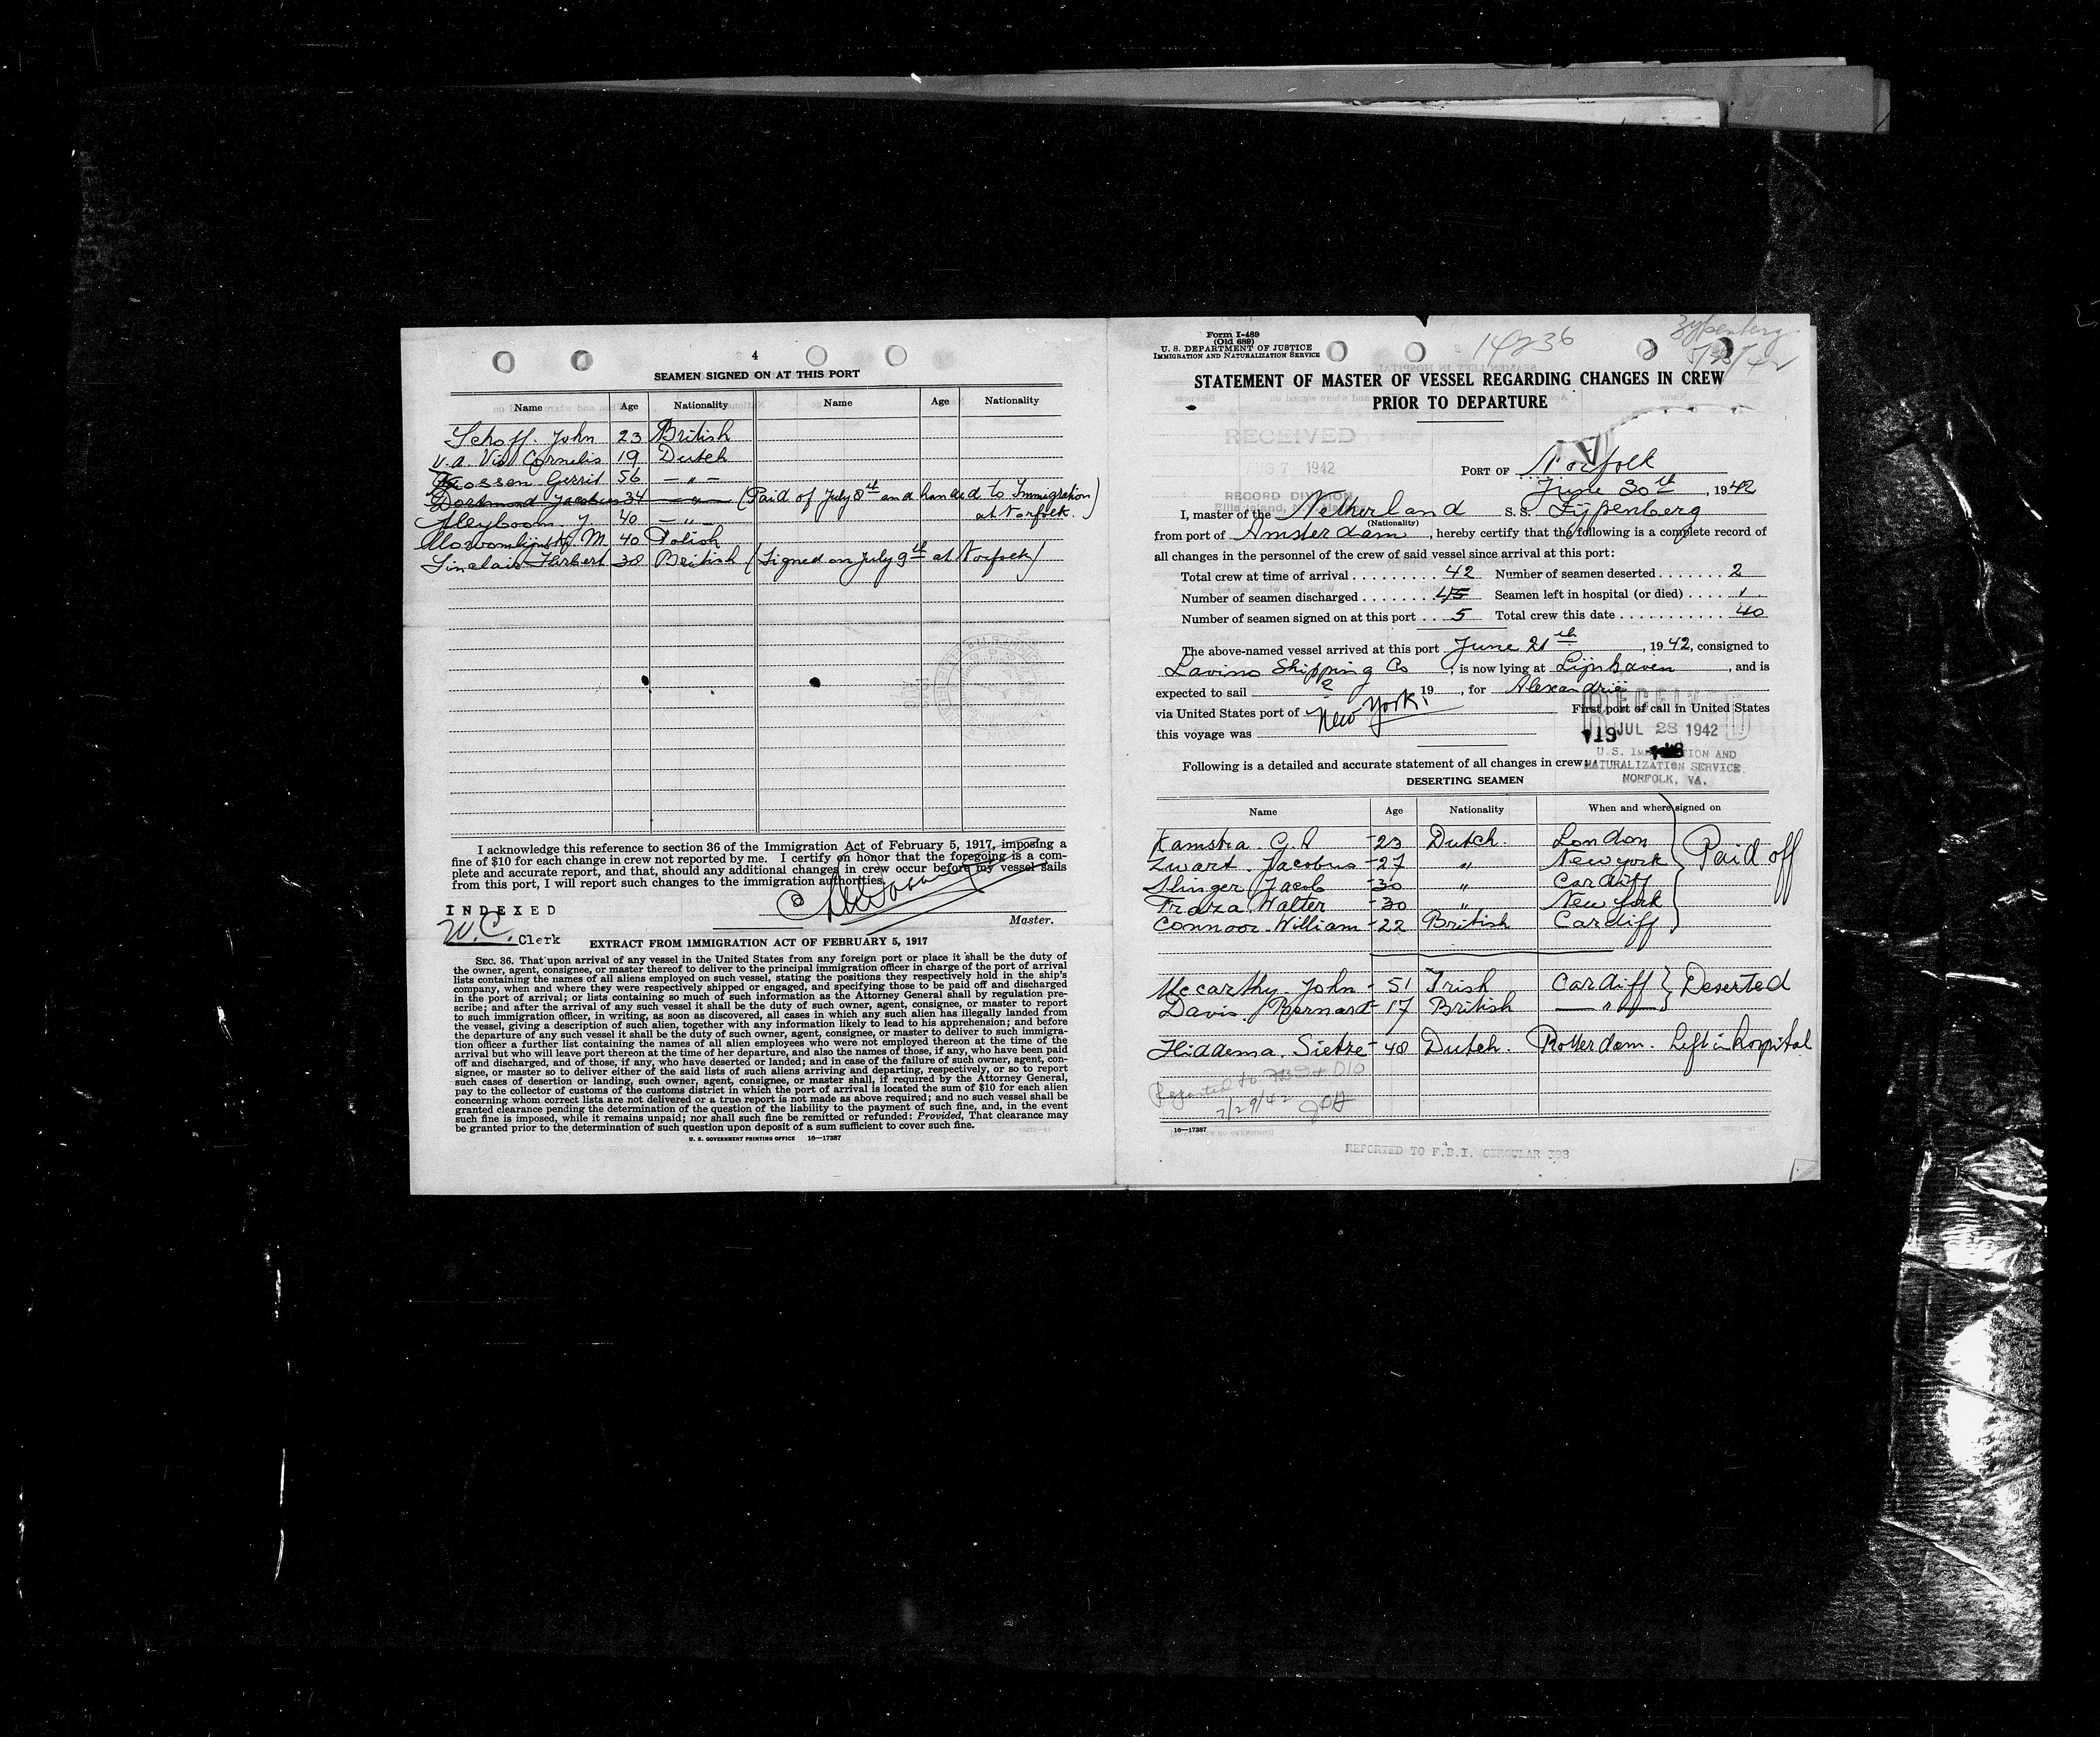 4
SEAMEN SIGNED ON AT THIS PORT
Name Age Nationality Name Age Nationality
Schoff. John 23 British
v.d. Vis Cornelis 19 Dutch
Gerrit 56 — " —
Dortmond Jacobus 34 — " — (Paid of July 8th and handed to Immigration
at Norfolk.)
Meyboom. J. 40 — " —
M 40 Polish
Sinclair Herbert 38 British (Signed on July 9th at Norfolk)
I acknowledge this reference to section 36 of the Immigration Act of February 5, 1917, imposing a
fine of $10 for each change in crew not reported by me. I certify on honor that the foregoing is a com-
plete and accurate report, and that, should any additional changes in crew occur before my vessel sails
from this port, I will report such changes to the immigration authorities.
INDEXED
Master.
W.C. Clerk
EXTRACT FROM IMMIGRATION ACT OF FEBRUARY 5, 1917
SEC. 36. That upon arrival of any vessel in the United States from any foreign port or place it shall be the duty of
the owner, agent, consignee, or master thereof to deliver to the principal immigration officer in charge of the port of arrival
lists containing the names of all aliens employed on such vessel, stating the positions they respectively hold in the ship's
company, when and where they were respectively shipped or engaged, and specifying those to be paid off and discharged
in the port of arrival; or lists containing so much of such information as the Attorney General shall by regulation pre-
scribe; and after the arrival of any such vessel it shall be the duty of such owner, agent, consignee, or master to report
to such immigration officer, in writing, as soon as discovered, all cases in which any such alien has illegally landed from
the vessel, giving a description of such alien, together with any information likely to lead to his apprehension; and before
the departure of any such vessel it shall be the duty of such owner, agent, consignee, or master to deliver to such immigra-
tion officer a further list containing the names of all alien employees who were not employed thereon at the time of the
arrival but who will leave port thereon at the time of her departure, and also the names of those, if any, who have been paid
off and discharged, and of those, if any, who have deserted or landed; and in case of the failure of such owner, agent, con-
signee, or master so to deliver either of the said lists of such aliens arriving and departing, respectively, or so to report
such cases of desertion or landing, such owner, agent, consignee, or master shall, if required by the Attorney General,
pay to the collector of customs of the customs district in which the port of arrival is located the sum of $10 for each alien
concerning whom correct lists are not delivered or a true report is not made as above required; and no such vessel shall be
granted clearance pending the determination of the question of the liability to the payment of such fine, and, in the event
such fine is imposed, while it remains unpaid; nor shall such fine be remitted or refunded: Provided, That clearance may
be granted prior to the determination of such question upon deposit of a sum sufficient to cover such fine.
U. S. GOVERNMENT PRINTING OFFICE 16—17387
Form I-489
(Old 689)
U. S. DEPARTMENT OF JUSTICE
IMMIGRATION AND NATURALIZATION SERVICE
14236
Zypenberg
STATEMENT OF MASTER OF VESSEL REGARDING CHANGES IN CREW
PRIOR TO DEPARTURE
RECEIVED
AUG 7 1942
RECORD DIVISION
PORT OF Norfolk
June 30th, 1942
I, master of the Netherland S.S. Zijpenberg
(Nationality)
from port of Amsterdam, hereby certify that the following is a complete record of
all changes in the personnel of the crew of said vessel since arrival at this port:
Total crew at time of arrival 42 Number of seamen deserted 2
Number of seamen discharged 45 Seamen left in hospital (or died) 1
Number of seamen signed on at this port 5 Total crew this date 40
The above-named vessel arrived at this port June 21th, 1942, consigned to
Lavino Shipping Co, is now lying at Lijnhaven, and is
expected to sail ? 19 , for Alexandrië
via United States port of New York. First port of call in United States
this voyage was
RECEIVED
JUL 28 1942
U.S. IMMIGRATION AND
NATURALIZATION SERVICE
NORFOLK, VA.
Following is a detailed and accurate statement of all changes in crew:
DESERTING SEAMEN
Name Age Nationality When and where signed on
Kamstra. G. 23 Dutch. London
Zwart. Jacobus 27 " New York
Slinger Jacob 30 " Cardiff
Fraza Walter 30 " New York
Connoor. William 22 British Cardiff
Paid off
Mc carthy. John 51 Irish Cardiff
Davis. Bernard 17 British — " —
Deserted
Hiddema. Sietze 48 Dutch. Rotterdam. Left in hospital
Reported to FBI & DIO
7/29/42
16—17387
REPORTED TO F.B.I. CIRCULAR 398